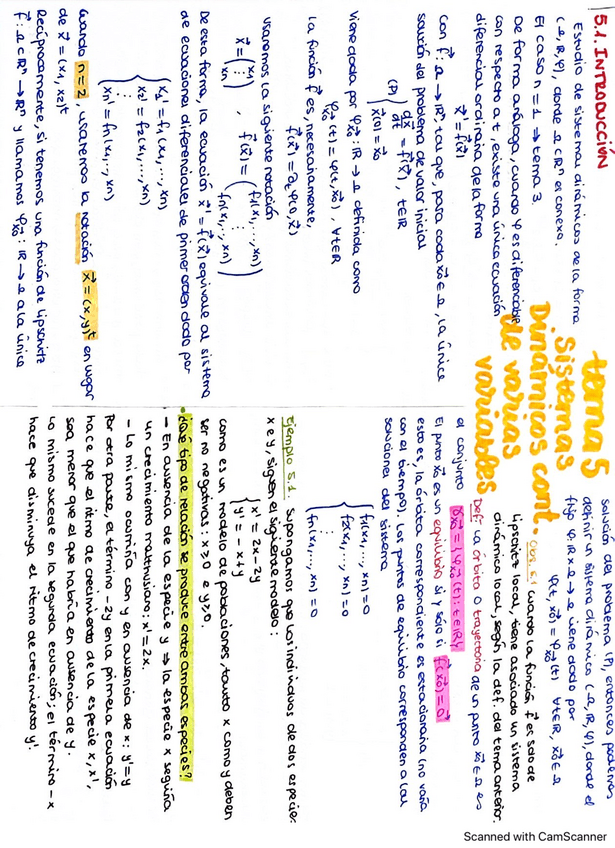 5.1. INTRODUCCIÓN
Estudio de sistemas dinámicos de la forma
(Ω, ℝ, φ), donde Ω ⊂ ℝⁿ es conexo.
El caso n = 1 → tema 3.
De forma análoga, cuando φ es diferenciable
con respecto a t, existe una única ecuación
diferencial ordinaria de la forma
x⃗' = f⃗(x⃗)
con f⃗: Ω → ℝⁿ, tal que, para cada x⃗₀ ∈ Ω, la única
solución del problema de valor inicial
(P) { dx⃗/dt = f⃗(x⃗), t ∈ ℝ
x⃗(0) = x⃗₀
viene dada por φx⃗₀: ℝ → Ω definida como
φx⃗₀(t) = φ(t, x⃗₀), ∀t ∈ ℝ
La función f⃗ es, necesariamente,
f⃗(x⃗) = ∂tφ(0, x⃗)
Usaremos la siguiente notación
x⃗ = (x₁ ⋮ xn), f⃗(x⃗) = (f₁(x₁,..., xn) ⋮ fn(x₁,..., xn))
De esta forma, la ecuación x⃗' = f⃗(x⃗) equivale al sistema
de ecuaciones diferenciales de primer orden dado por
{ x₁' = f₁(x₁,..., xn)
x₂' = f₂(x₁,..., xn)
⋮
xn' = fn(x₁,..., xn)
Cuando n = 2, usaremos la notación x⃗ = (x, y)ᵗ en lugar
de x⃗ = (x₁, x₂)ᵗ
Recíprocamente, si tenemos una función de Lipschitz
f⃗: Ω ⊂ ℝⁿ → ℝⁿ y llamamos φx⃗₀: ℝ → Ω a la única
tema 5
Sistemas
Dinámicos cont.
de varias
variables
solución del problema (P), entonces podemos
definir un sistema dinámico (Ω, ℝ, φ), donde el
flujo φ: ℝ × Ω → Ω viene dado por
φ(t, x⃗₀) = φx⃗₀(t) ∀t ∈ ℝ, x⃗₀ ∈ Ω
Cuando la función f⃗ es solo de
Lipschitz local, tiene asociado un sistema
dinámico local, según la def. del tema anterior.
Def: La órbita o trayectoria de un punto x⃗₀ ∈ Ω es
el conjunto γx⃗₀ = {φx⃗₀(t): t ∈ ℝ}
El punto x⃗₀ es un equilibrio si y sólo si f⃗(x⃗₀) = 0⃗
esto es, la órbita correspondiente es estacionaria (no varía
con el tiempo). Los puntos de equilibrio corresponden a las
soluciones del sistema
{ f₁(x₁,..., xn) = 0
f₂(x₁,..., xn) = 0
⋮
fn(x₁,..., xn) = 0
Ejemplo 5.1. Supongamos que los individuos de dos especies
x e y, siguen el siguiente modelo:
{ x' = 2x - 2y
y' = -x + y
como es un modelo de poblaciones, tanto x como y deben
ser no negativas: x ≥ 0 e y ≥ 0.
• ¿Qué tipo de relación se produce entre ambas especies?
- En ausencia de la especie y → la especie x seguiría
un crecimiento malthusiano: x' = 2x.
- Lo mismo ocurriría con y en ausencia de x: y' = y
Por otra parte, el término -2y en la primera ecuación
hace que el ritmo de crecimiento de la especie x, x',
sea menor que el que habría en ausencia de y.
Lo mismo sucede en la segunda ecuación; el término -x
hace que disminuya el ritmo de crecimiento y'.
Scanned with CamScanner